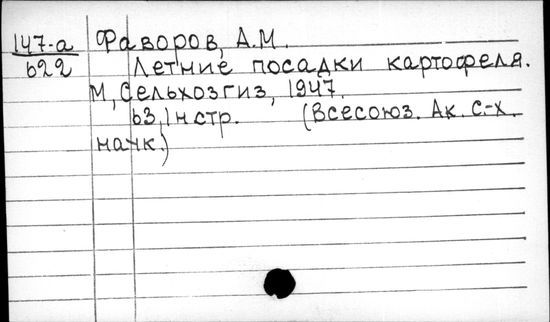 147-а Фаворов, А.М.
622 Летние посадки картофеля.
М, Сельхозгиз, 1947.
63,1н стр. (Всесоюз. Ак. с-х.
наук.)